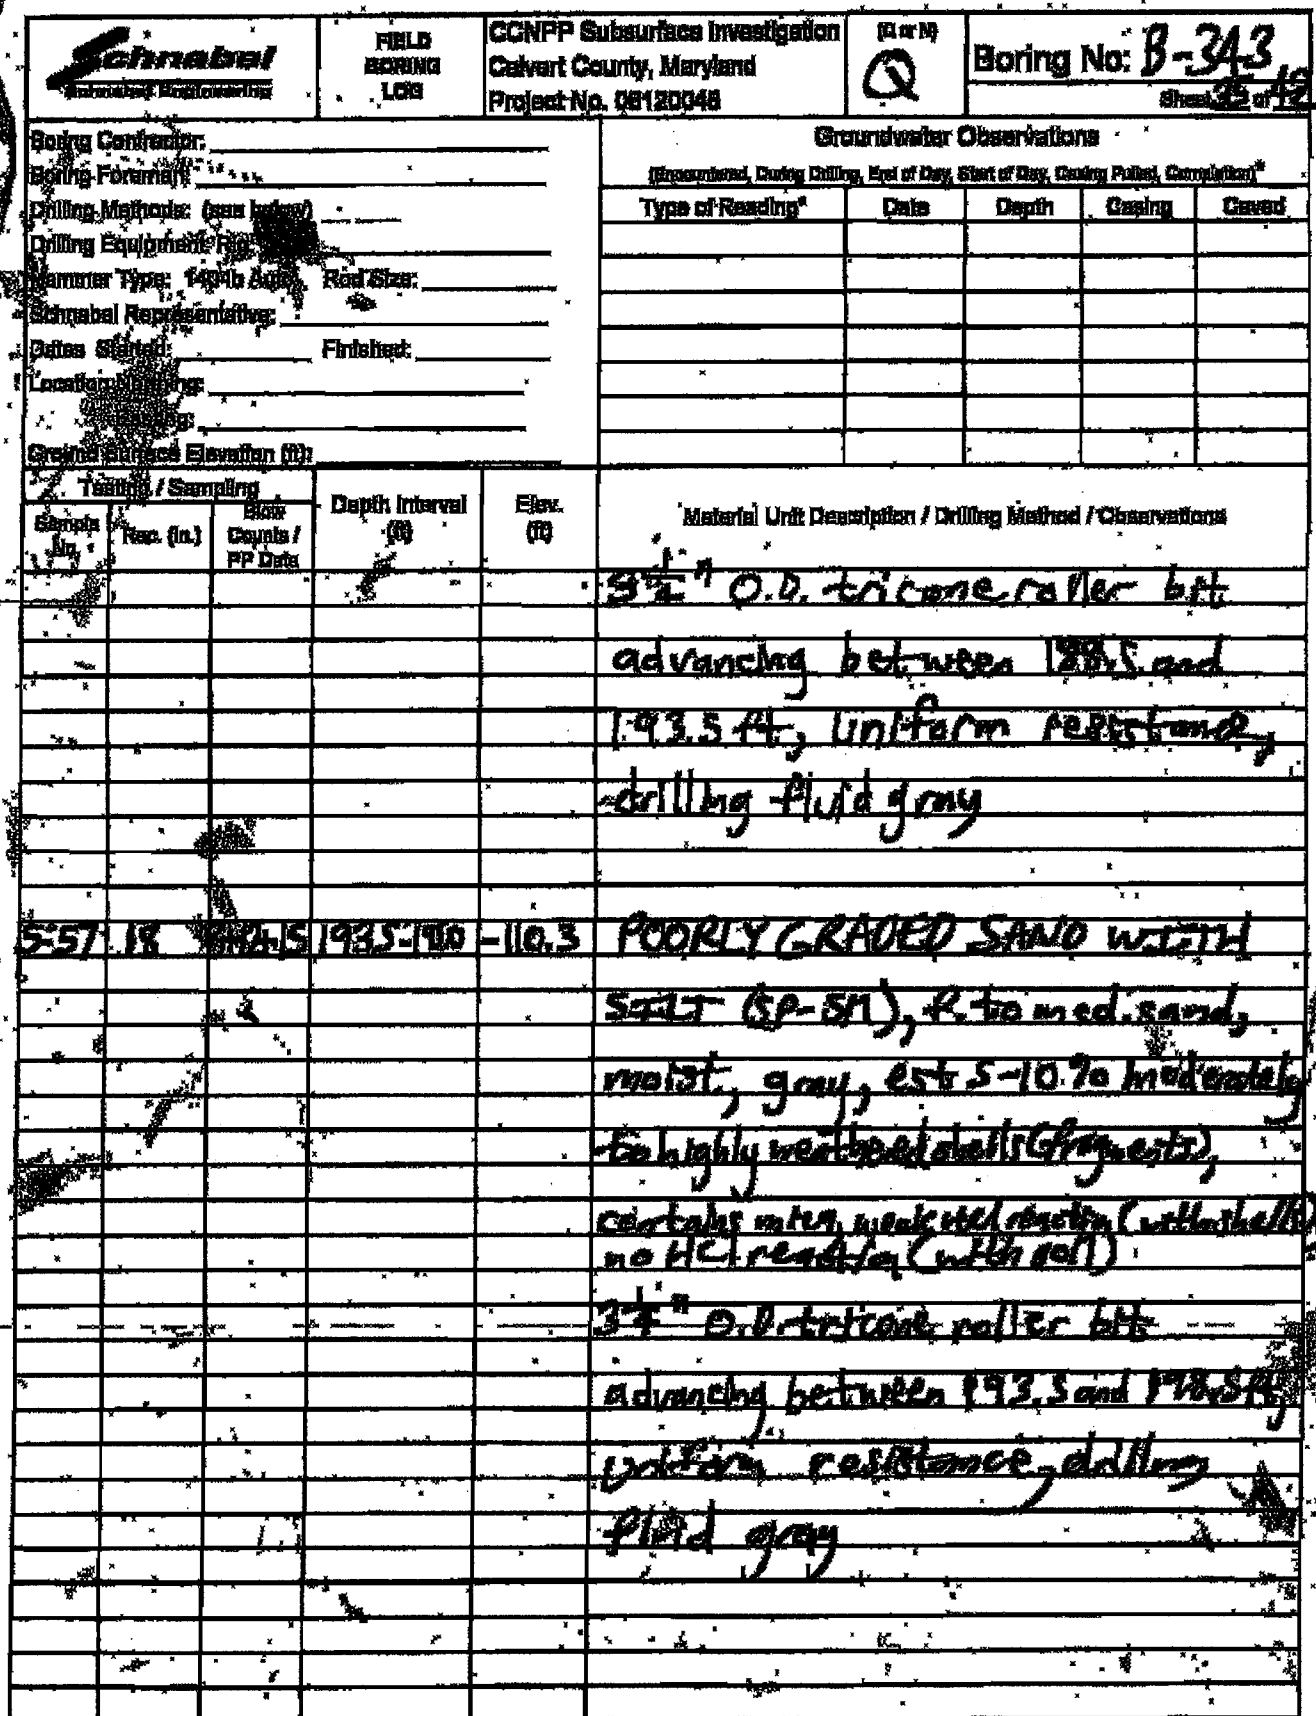 Schnabel
Schnabel Engineering
FIELD
BORING
LOG
CCNPP Subsurface Investigation
Calvert County, Maryland
Project No. 06120048
(Q or N)
Q
Boring No: B-343
Sheet 35 of 42
Boring Contractor:
Boring Foreman:
Drilling Methods: (see below)
Drilling Equipment: Rig
Hammer Type: 140 lb Auto Rod Size:
Schnabel Representative:
Dates Started: Finished:
Location Northing:
Easting:
Ground Surface Elevation (ft):
Groundwater Observations
(Encountered, During Drilling, End of Day, Start of Day, Casing Pulled, Completion)*
Type of Reading* Date Depth Casing Caved
Testing / Sampling
Sample No. Rec. (in.) Blow Counts / PP Data
Depth Interval (ft)
Elev. (ft)
Material Unit Description / Drilling Method / Observations
3 1/4" O.D. tricone roller bit
advancing between 188.5 and
193.5 ft, uniform resistance,
drilling fluid gray
S-57 18 193.5-1950 -110.3 POORLY GRADED SAND WITH
SILT (SP-SM), f. to med. sand,
moist, gray, est. 5-10% moderately
to highly weathered shells (fragments),
contains mica, weak HCl reaction (with shells)
no HCl reaction (with soil)
3 1/4" O.D. tricone roller bit
advancing between 193.5 and 198.5 ft,
uniform resistance, drilling
fluid gray